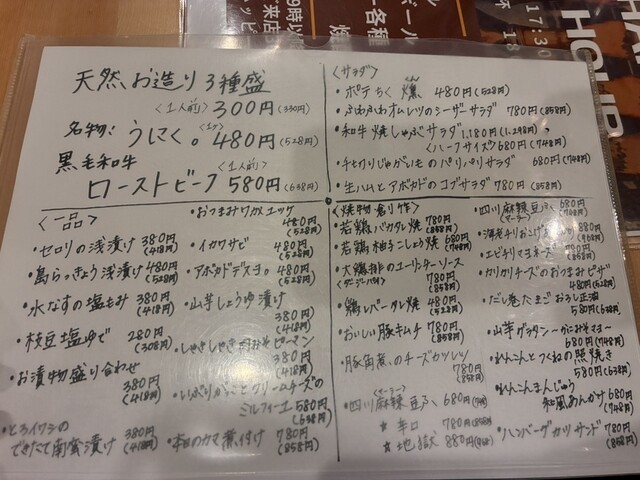 天然お造り3種盛
<1人前> 300円(330円)
名物:うにく。<1ケ>480円(528円)
黒毛和牛
<1人前>
ローストビーフ 580円(638円)
<サラダ>
・ポテちく 燻 480円(528円)
・ふわふわオムレツのシーザーサラダ 780円(858円)
・和牛焼しゃぶサラダ 1,180円(1,298円)
<ハーフサイズ>680円(748円)
・千切りじゃがいものパリパリサラダ 680円(748円)
・生ハムとアボカドのコブサラダ 780円(858円)
<一品>
・セロリの浅漬け 380円(418円)
・島らっきょう浅漬け 480円(528円)
・水なすの塩もみ 380円(418円)
・枝豆塩ゆで 280円(308円)
・お漬物盛り合わせ
380円(418円)
・とろイワシの
できたて南蛮漬け 380円(418円)
・おつまみワカメユッケ
480円(528円)
・イカワサビ 480円(528円)
・アボカドデスヨ。480円(528円)
・山芋しょうゆ漬け
380円(418円)
・しゃきしゃき肉みそピーマン
380円(418円)
・いぶりがっことクリームチーズの
ミルフィーユ 580円(638円)
・本日のカマ煮付け 780円(858円)
<焼物・創作>
・若鶏バカタレ焼 780円(858円)
・若鶏柚子こしょう焼 680円(748円)
・大鶏排のユーリンチーソース
(ダージーパイ) 780円(858円)
・鶏レバータレ焼 480円(528円)
・おいしい豚キムチ 780円(858円)
・豚角煮のチーズカツレツ
780円(858円)
・四川麻辣豆ふ 680円(748円)
(マーラー)
☆ 辛口 780円(858円)
☆ 地獄 880円(968円)
・四川麻辣豆ふ 680円(748円)
(マーラー)
・海老チリおこげ 880円(968円)
・エビチリマヨネーズ 780円(858円)
・カリカリチーズのおつまみピザ
480円(528円)
・だし巻たまご おろし正油
580円(638円)
・山芋グラタン〜うにみそマヨ〜
680円(748円)
・れんこんとつくねの照焼き
580円(638円)
・れんこんまんじゅう
和風あんかけ 680円(748円)
・ハンバーグカツサンド 780円(858円)
9時以
来店
ドール
各種
17:30
HOUR